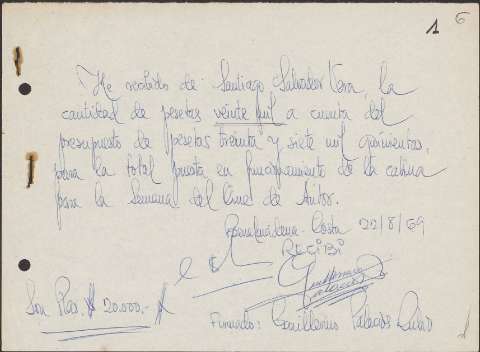 1 6
He recibido de Santiago Salvador Vera, la
cantidad de pesetas veinte mil a cuenta del
presupuesto de pesetas treinta y siete mil quinientas,
para la total puesta en funcionamiento de la cabina
para la Semana del Cine de Autor.
Benalmádena-Costa 22/8/69
RECIBÍ
Son Ptas. # 20.000.- #
Firmado: Guillermo Palacios Rubio